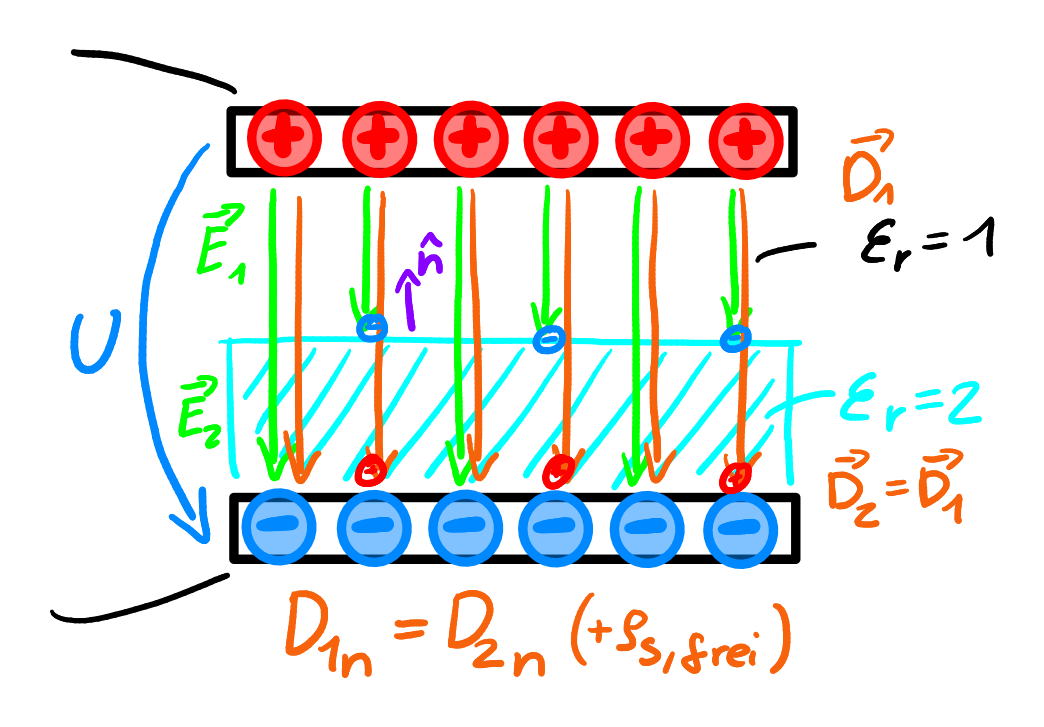 D⃗₁
εᵣ = 1
E⃗₁
n̂
U
E⃗₂
εᵣ = 2
D⃗₂ = D⃗₁
D₁ₙ = D₂ₙ (+ρ_{s,frei})